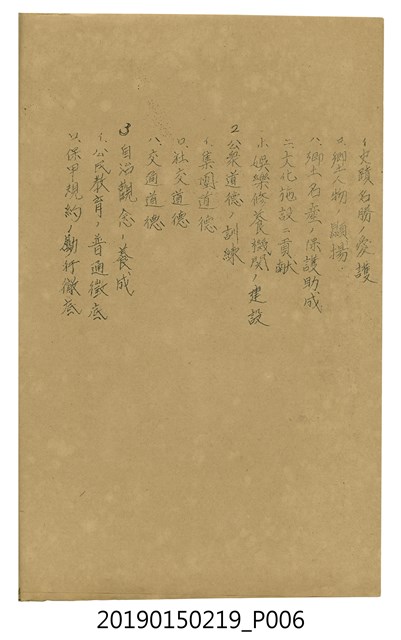 イ、史蹟名勝ノ愛護
ロ、郷土人物ノ顯揚
ハ、郷土名産ノ保護助成
ニ、文化施設ニ貢獻
ホ、娯樂修養機関ノ建設
2 公衆道德ノ訓練
イ、集團道德
ロ、社交道德
ハ、交通道德
3 自治觀念ノ養成
イ、公民教育ノ普通徹底
ロ、保甲規約ノ勵行徹底
20190150219_P006